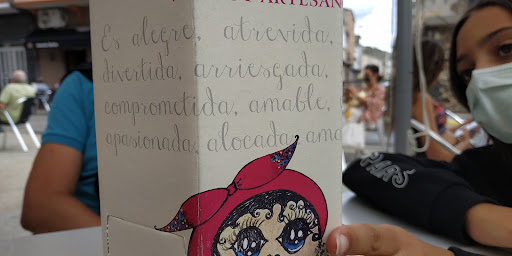 Y ARTESAN
Es alegre, atrevida,
divertida, arriesgada,
comprometida, amable,
apasionada, alocada, ama